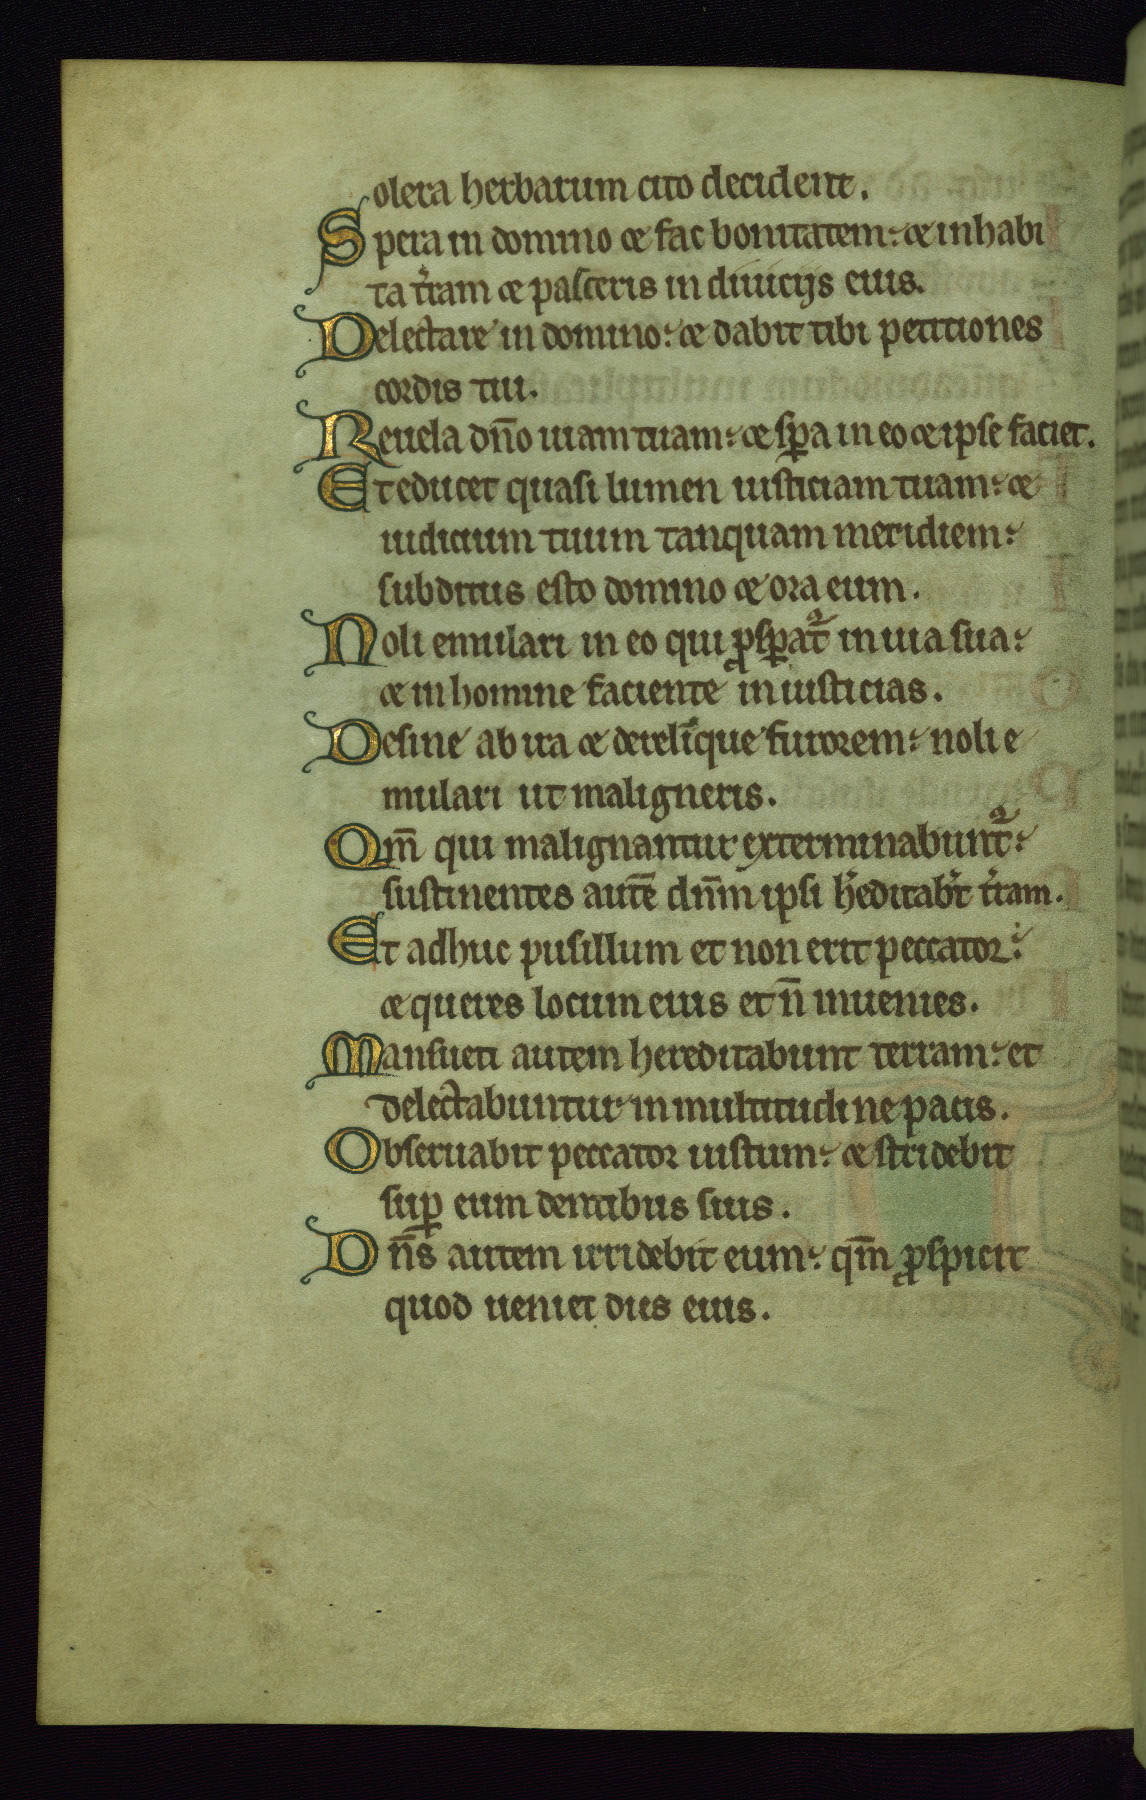 olera herbarum cito decident.
Spera in domino & fac bonitatem: & inhabi
ta t̃ram & pasceris in diuicijs eius.
Delectare in domino: & dabit tibi petitiones
cordis tui.
Reuela dn̄o uiam tuam: & sꝑa in eo & ipse faciet.
Et educet quasi lumen iusticiam tuam: &
iudicium tuum tanquam meridiem:
subditus esto domino & ora eum.
Noli emulari in eo qui ꝓsꝑat᷑ in uia sua:
& in homine faciente iniusticias.
Desine ab ira & derelique furorem: noli e
mulari ut maligneris.
Qm̄ qui malignantur exterminabunt᷑:
sustinentes autē dn̄m ipsi h̾editab̾t t̾ram.
Et adhuc pusillum et non erit peccator:
& queres locum eius et n̄ inuenies.
Mansueti autem hereditabunt terram: et
delectabuntur in multitudine pacis.
Obseruabit peccator iustum: & stridebit
suꝑ eum dentibus suis.
Dn̄s autem irridebit eum: qm̄ ꝓspicit
quod ueniet dies eius.